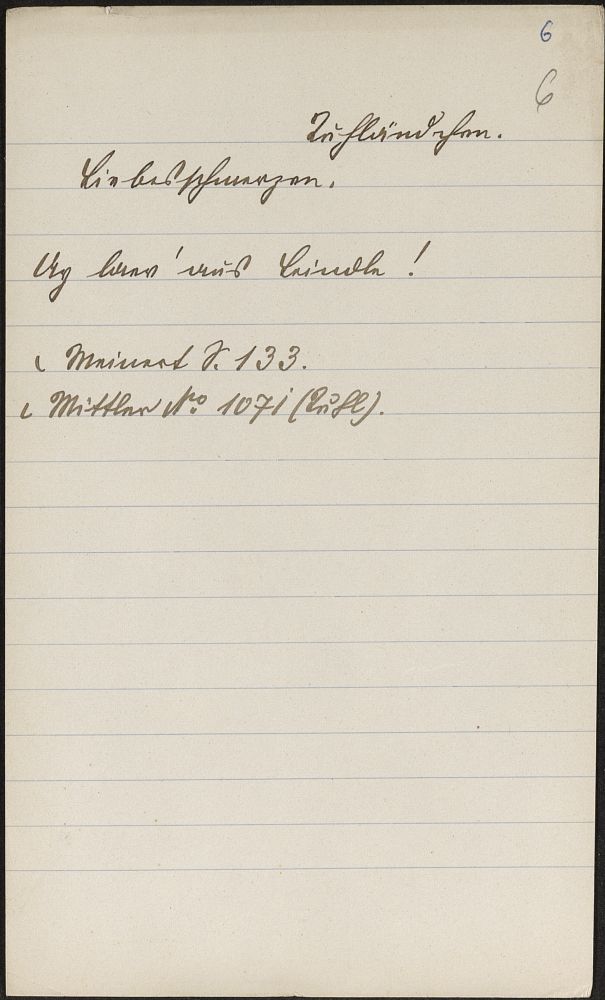 6
6
Kuhländchen.
Liebesschmerzen.
aus Leindle !
Meinert S. 133.
Mittler No 1071 (Kuhl).